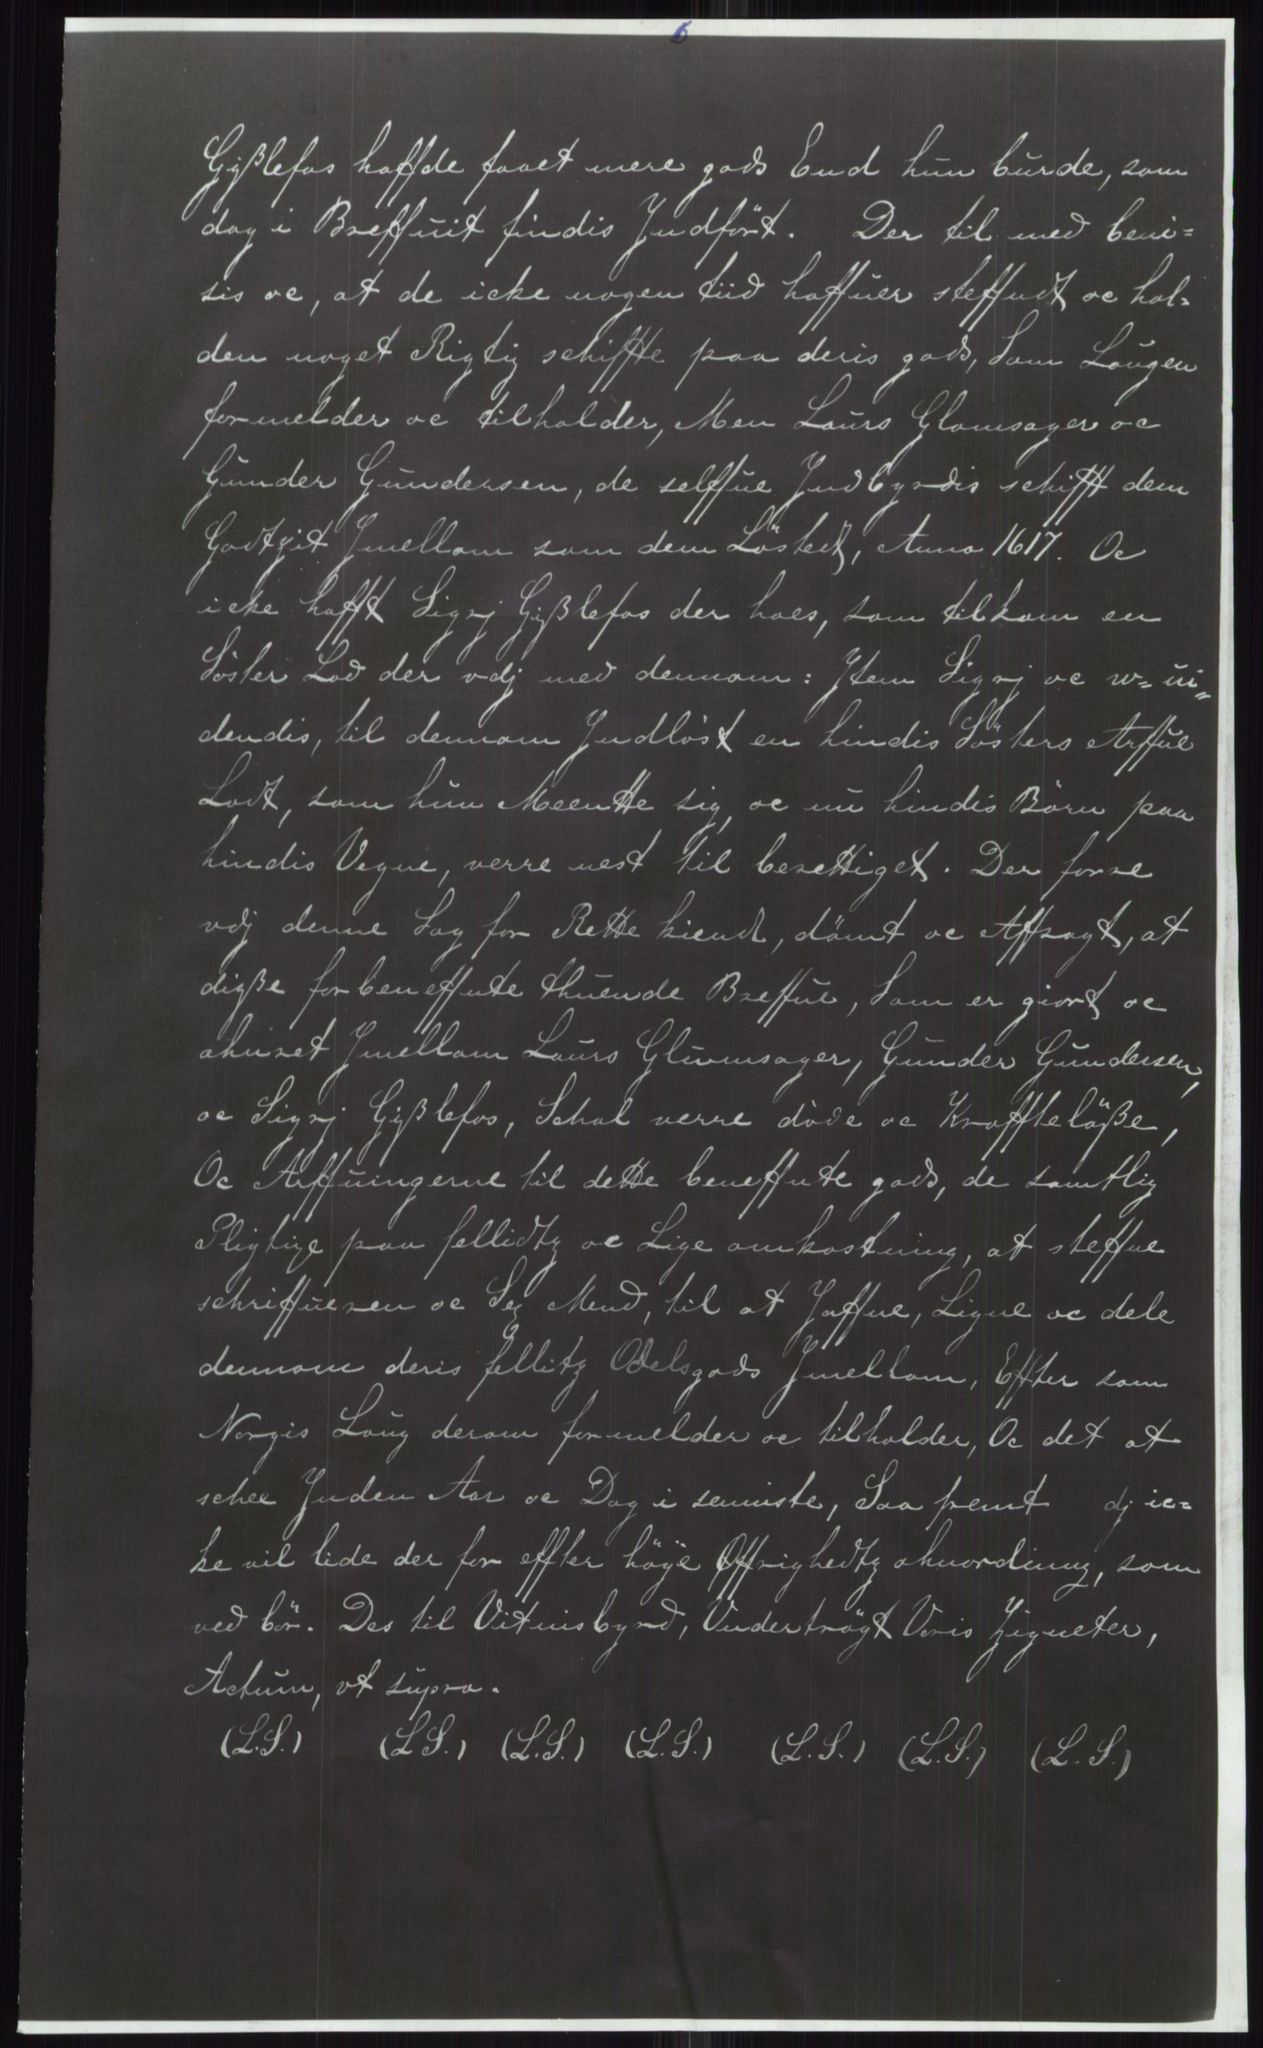 6
Gißlefos haffde faaet mere gods End hun burde, som
dog i Breffuit findis Jndfört. Der til med bevi=
sis oc, at de icke nogen tiid haffuer steffndt oc hol=
den noget Rigtig schiffte paa deris gods, Som Lougen
formelder oc tilholder, Men Laurs Glomsager oc
Gunder Gundersen, de selffue Jndbyrdis schifft dem
Godtzit Jmellom som dem Lösted, Anno 1617. Oc
icke hafft Sigrj Gißlefos der hoes, som tilkom en
Söster Lod der vdj med dennom: Jtem Sigrj oc w=ui=
dendis, til dennom Jndlöst en hindis Sösters Arffue
Lodt, som hun Meentte sig, oc nu hindis Börn paa
hindis Vegne, verre nest til berettiget. Der forre
vdj denne Sag for Rette kiendt, dömt oc Affsagt, at
diße forbeneffnte thuende Breffue, Som er giort oc
ahuret Jmellom Laurs Glumsager, Gunder Gundersen,
oc Sigrj Gißlefos, Schal verre döde oc Krafftelöße,
Oc Arffuingerne til dette beneffnte gods, de samtlig
Pligtige paa fellidtz oc Lige omkostning, at steffne
schriffueren oc Sex Mend, til at Jaffne, Ligne oc dele
dennom deris fellitz Odelsgods Jmellom, Effter som
Norgis Loug derom formelder oc tilholder, Oc det at
schee Jnden Aar oc Dag i seniste, Saa fremt dj ic=
ke vil lide der for effter höye Öffrighedtz ahnordinng, som
ved bör. Des til Vitnisbyrd, Vndertrögt Voris Zigneter,
Actum, vt supra.
(L.S.) (L.S.) (L.S.) (L.S.) (L.S.) (L.S.) (L.S.)